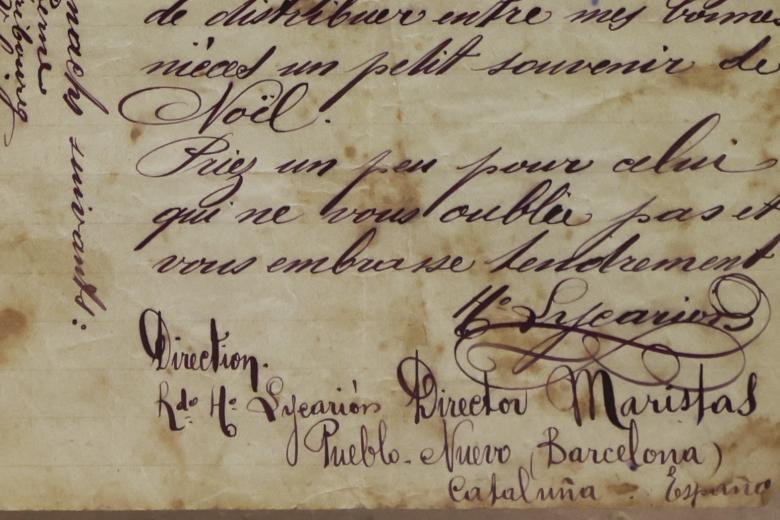 de distribuer entre mes bonnes
nièces un petit souvenir de
Noël.
Priez un peu pour celui
qui ne vous oublie pas et
vous embrasse tendrement
Hº Lycarión
Direction.
Rdo Hº Lycarión Director Maristas
Pueblo-Nuevo (Barcelona)
Cataluña - España
suivants: